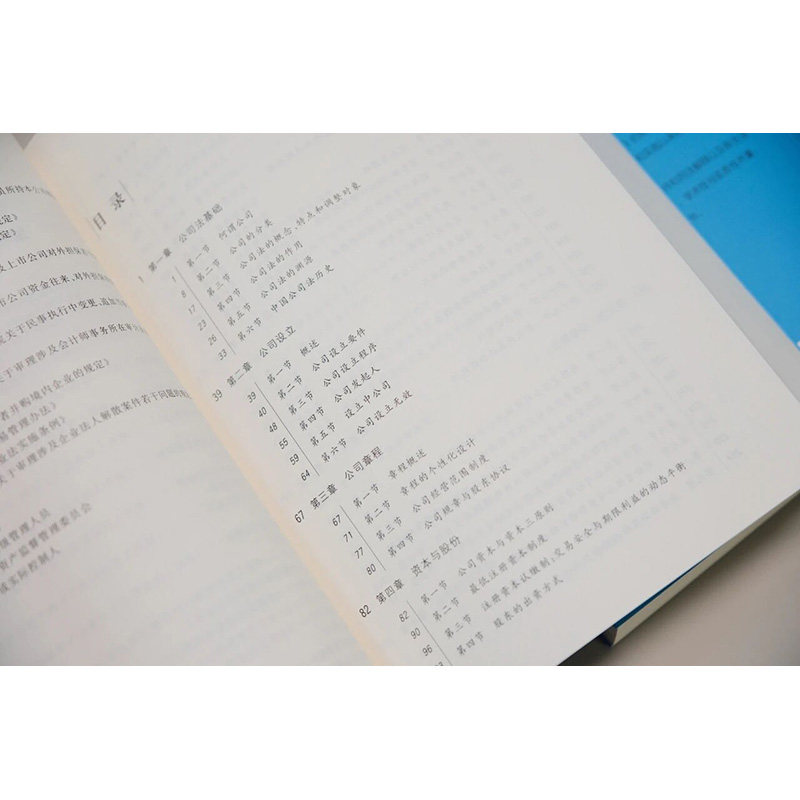 员所持本公
定》
定》
及上市公司对外担保
市公司资金往来、对外担保
院关于民事执行中变更、追加
关于审理涉及会计师事务所在审
者并购境内企业的规定》
易管理办法》
业法实施条例》
关于审理涉及企业法人解散案件若干问题的
管理人员
资产监督管理委员会
或实际控制人
目 录
1 第一章 公司法基础
1 第一节 何谓公司
8 第二节 公司的分类
17 第三节 公司法的概念、特点和调整对象
23 第四节 公司法的作用
26 第五节 公司法的渊源
33 第六节 中国公司法历史
39 第二章 公司设立
39 第一节 概述
40 第二节 公司设立要件
48 第三节 公司设立程序
55 第四节 公司发起人
59 第五节 设立中公司
64 第六节 公司设立无效
67 第三章 公司章程
67 第一节 章程概述
71 第二节 章程的个性化设计
77 第三节 公司经营范围制度
80 第四节 公司规章与股东协议
82 第四章 资本与股份
82 第一节 公司资本与资本三原则
90 第二节 最低注册资本制度
96 第三节 注册资本认缴制:交易安全与期限利益的动态平衡
第四节 股东的出资方式